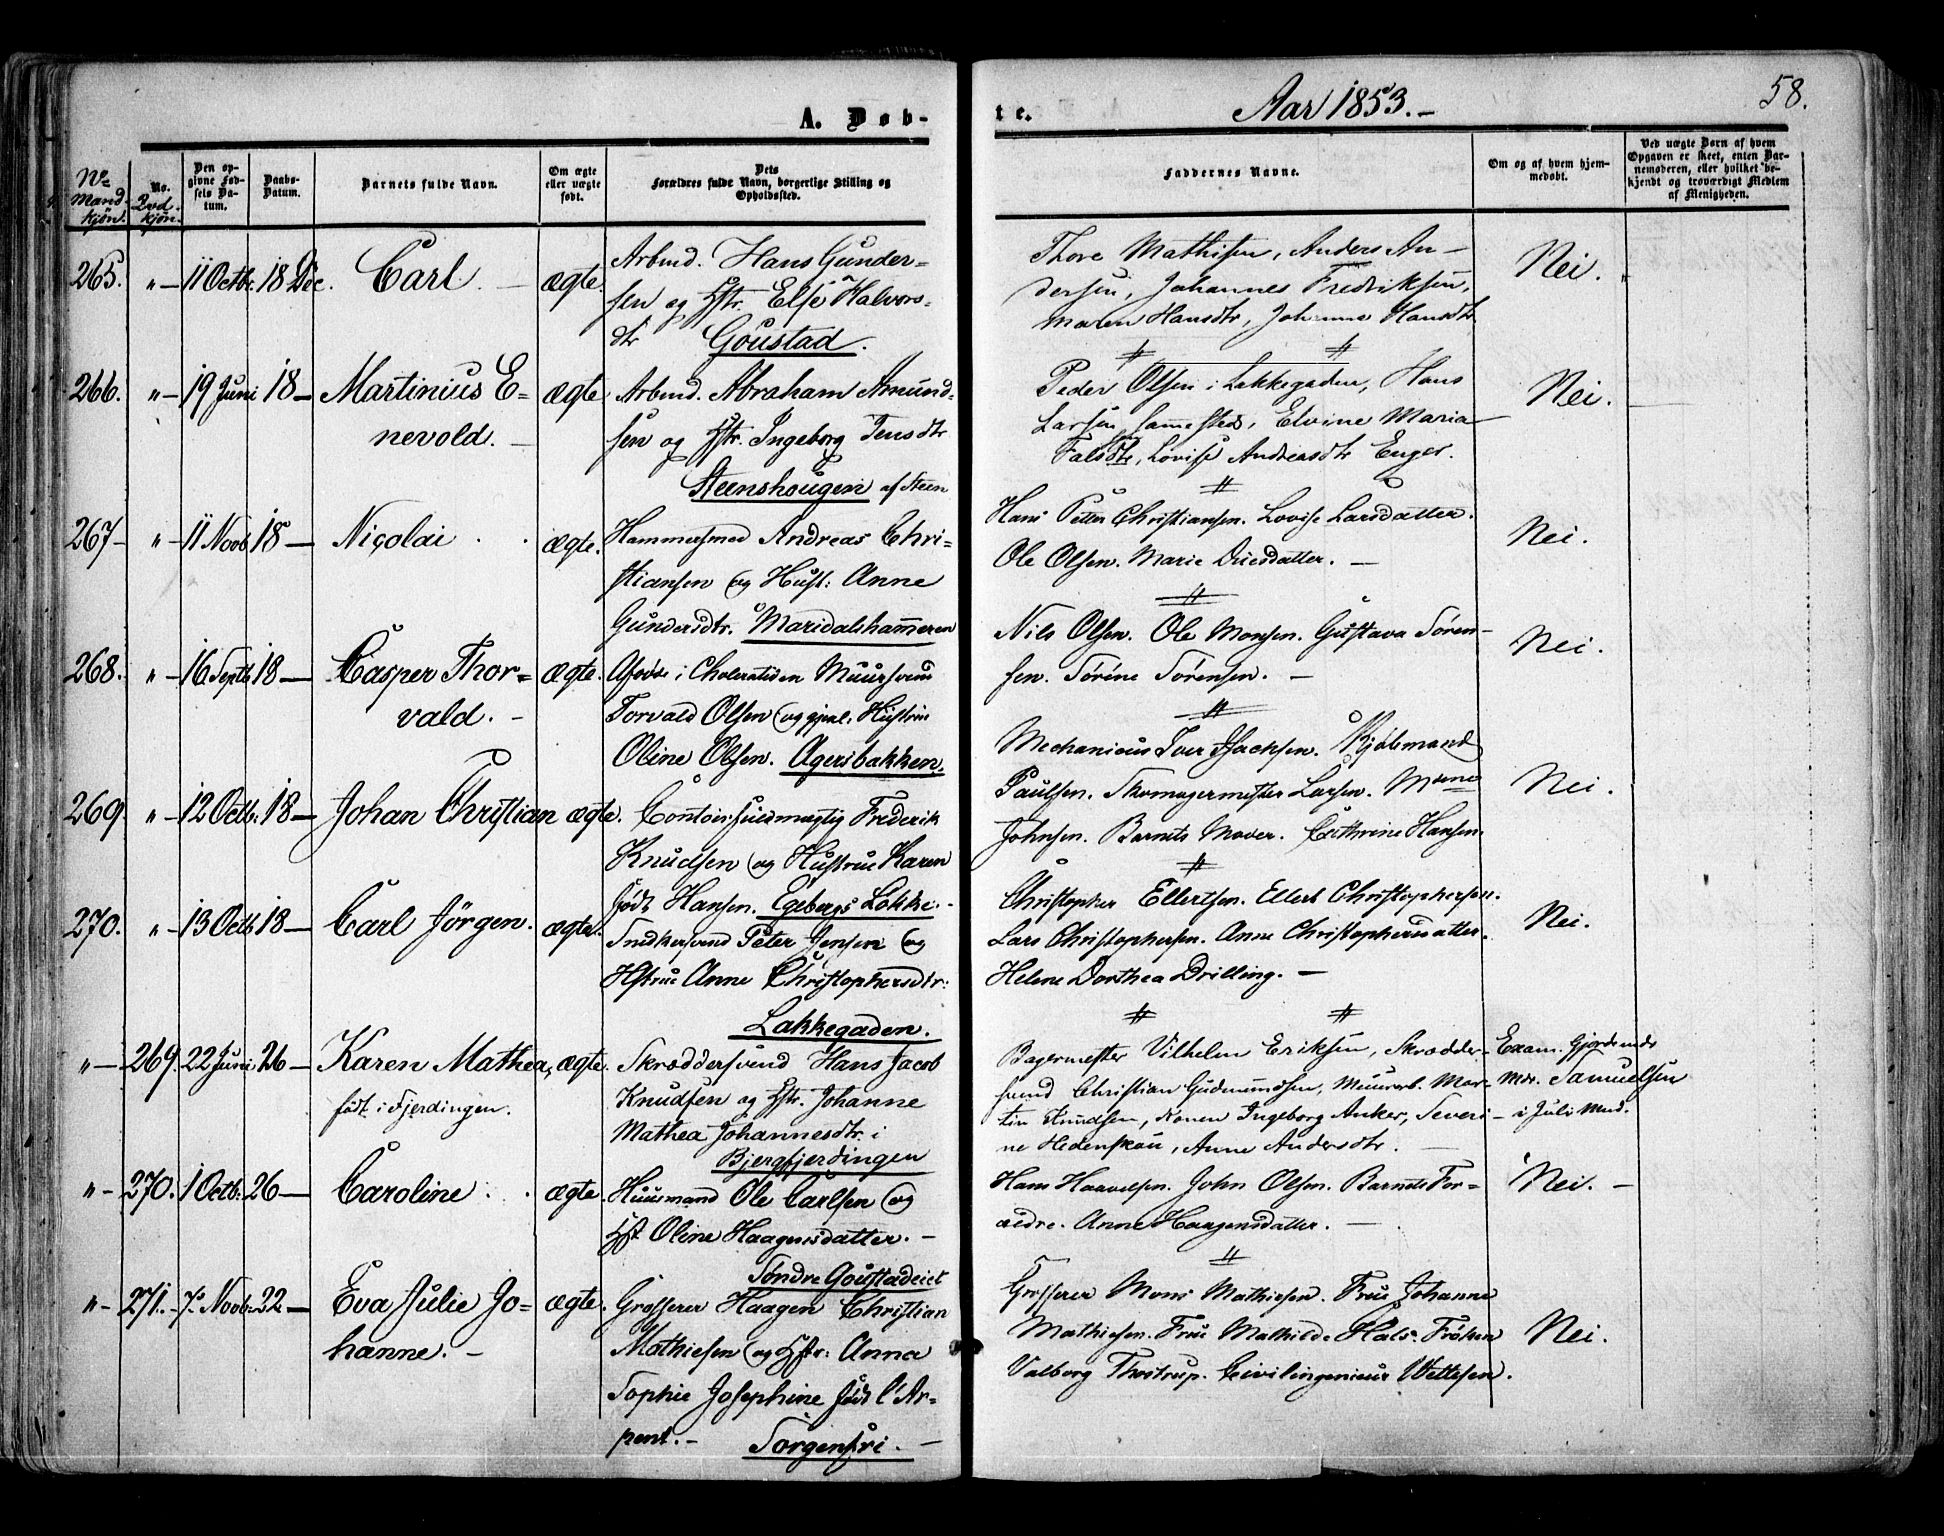 A. Døb-
te.
Aar 1853.-
58.
No Mandkjön.
No. Qvdkjøn.
Den opgivne Fødsels Datum.
Daabs-Datum.
Barnets fulde Navn.
Om ægte eller uægte født.
Dets Forældres fulde Navn, borgerlige Stilling og Opholdssted.
Faddernes Navne.
Om og af hvem hjemmedøbt.
Ved uægte Børn af hvem Opgaven er skeet, enten Barnemoderen, eller hvilket bekjendt og troværdigt Medlem af Menigheden.
265. „- 11 Octbr. 18 Dec. Carl. - ægte.
Arbmd. Hans Gunder-
sen og Hstr. Else Halvors-
dtr Goustad.
Thore Mathisen, Anders An-
dersen, Johannes Fredriksen,
Maren Hansdtr, Johanne Hansdtr.
Nei.
266. „- 19 Juni 18- Martinius E-
nevold. - ægte
Arbmd. Abraham Amund-
sen og Hstr. Ingeborg Jensdtr
Steenshougen af Steen
Peder Olsen i Lakkegaden, Hans
Larsen sammesteds, Elvine Maria
Falsdtr, Lovise Andreasdtr Enger.
Nei.
267- „- 11 Novb 18- Nicolai . . ægte.
Hammersmed Andreas Chri-
stiansen og Hust: Anne
Gundersdtr. Maridalshammeren
Hans Petter Christiansen. Lovise Larsdatter.
Ole Olsen. Marie Duesdatter. -
Nei.
268. „- 16 Septb 18- Casper Thor-
vald. - ægte.
Afdøde i Choleratiden Muursvend
Torvald Olsen og gjenl. Hustrue
Oline Olsen. Agersbakken.
Nils Olsen. Ole Monsen. Gustava Søren-
sen. Sørine Sørensen. -
Nei.
269 „- 12 Octb: 18- Johan Christian ægte.
Contoirfuldmægtig Frederik
Knudsen og Hustrue Karen
født Hansen. Egebergs Løkke. -
Mechanicus Iver Isachsen. Kjøbmand
Paulsen. Skomagermester Larsen. Mme
Johnsen. Barnets Moder. Cathrine Hansen.
Nei.
270. „- 13 Octb 18- Carl Jörgen. ægte.
Snedkersvend Peter Jensen og
Hstrue Anne Christophersdtr:
Lakkegaden.
Christopher Ellertsen. Ellert Christophersen.
Lars Christophersen. Anne Christophersdatter.
Helene Dorthea Drilling. -
Nei.
„- 269. 22 Juni 26- Karen Mathea, ægte.
født i Fjerdingen.
Skræddersvend Hans Jacob
Knudsen og Hstr. Johanne
Mathea Johannesdtr. i
Bjergfjerdingen
Bagermester Vilhelm Eriksen, Skrædder-
svend Christian Gudmundsen, Muurarb. Mar-
tin Knudsen, Konen Ingeborg Anker, Severi-
ne Hedenskou, Anne Andersdtr.
Exam. Gjordemdr
Mdr. Samuelsen
i Juli Mnd.
„- 270. 1 Octb: 26- Caroline . . ægte.
Huusmand Ole Carlsen og
Hst Oline Haagensdatter. -
Søndre Goustadeiet
Hans Haavelsen. John Olsen. Barnets For-
ældre. Anne Haagensdatter. -
Nei. -
„- 271.- 7. Novb 22- Eva Julie Jo-
hanne. - ægte.
Grosserer Haagen Christian
Mathiesen og Hstr: Anna
Sophie Josephine født l'Ar-
pent. - Sorgenfri. -
Grosserer Mons Mathiesen. Frue Johanne
Mathiesen. Frue Mathilde Hals. Frøken
Valborg Thostrup. Civilingenieur Wettesen.
Nei.